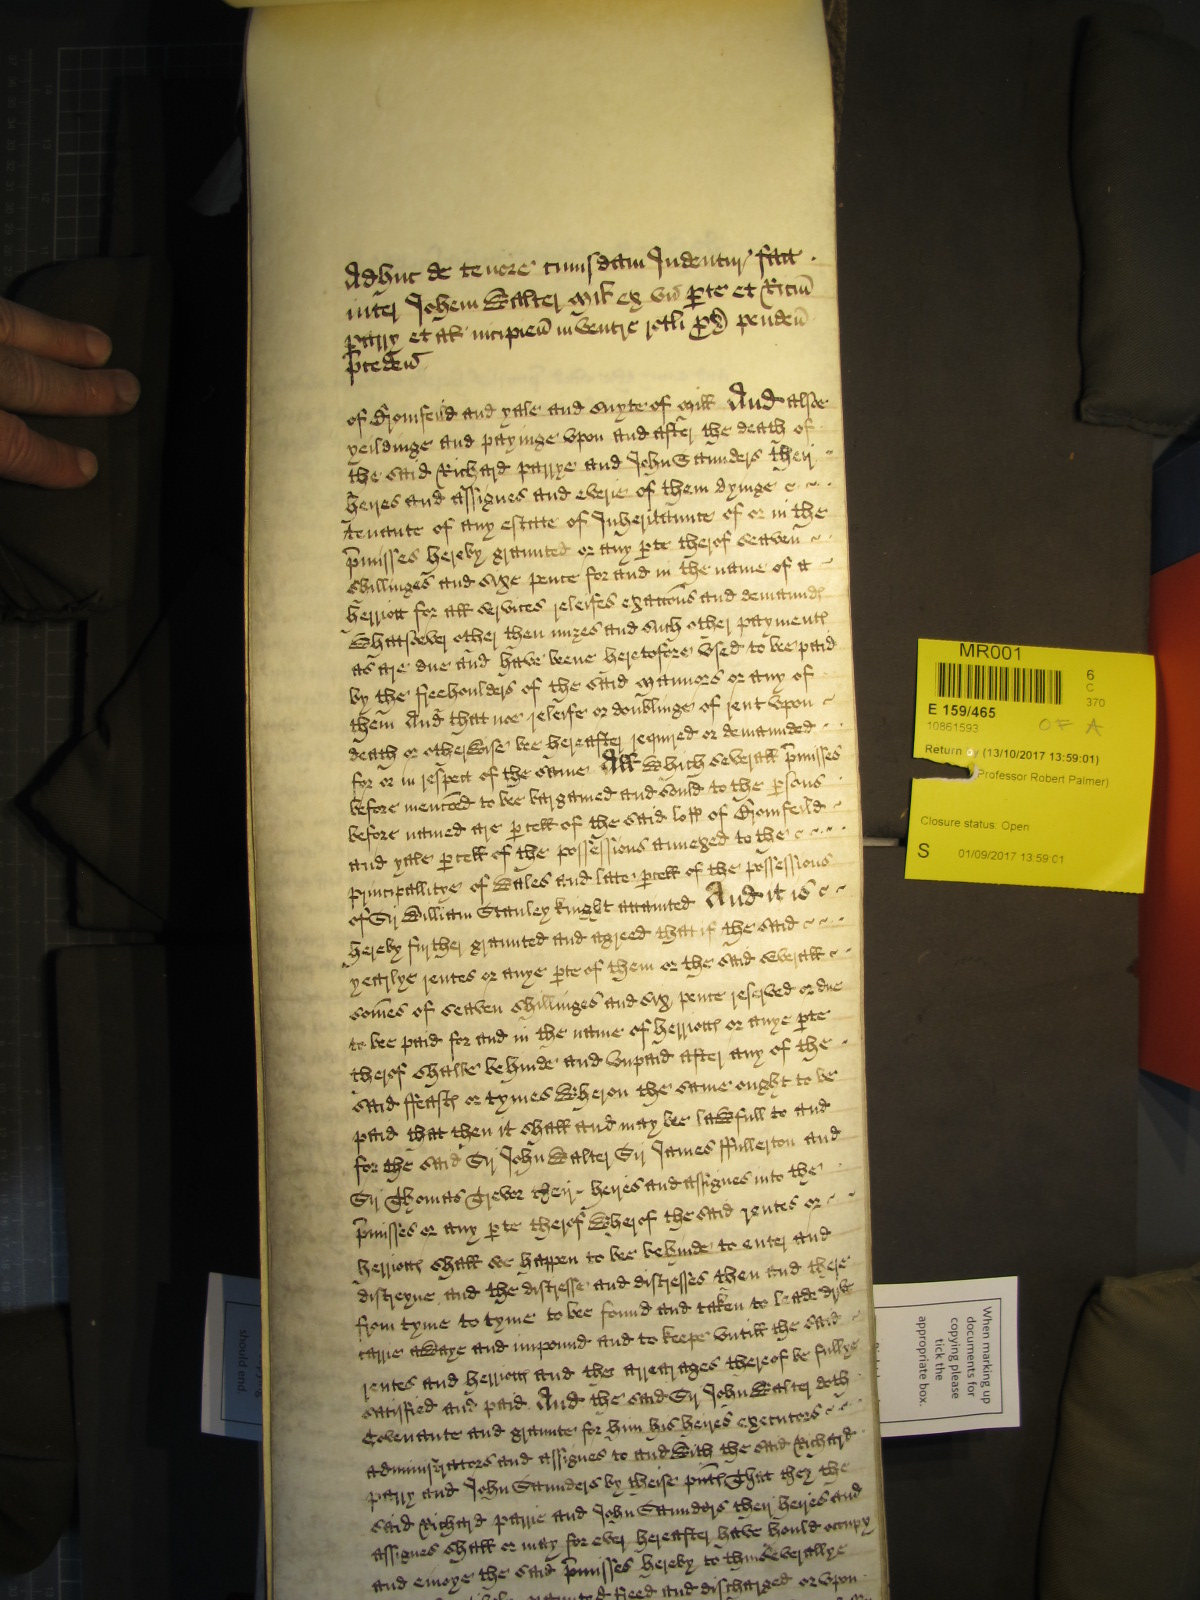 Adhuc de tenore cuiusdam Indentur' fact'
inter Joh'em Walter mil' ex un' p'te et Ric'um
Parry et al' incipien' in ventre rot'li pendeñ
p'ceden'
of Bromfeild and yale and suyte of mill And alsoe
yeildinge and payinge vpon and after the death of
the said Richard parrye and John Saunders their
heires and assignes and everie of them dyinge
tenante of any estate of Inheritaunce of or in the
p'misses hereby graunted or any p'te therof seaven
shillinges and sixe pence for and in the name of a
herriott for all services releifes exac'ons and demaundes
whatsoever other then mizes and such other paymentes
as are due and have beene heretofore vsed to bee paid
by the freehoulders of the said mannors or any of
them And that noe releife or doublinge of rent vpon
death or otherwise bee hereafter required or demaunded
for or in respect of the same All which severall p'misses
before menc'oed to bee bargained and sould to the p'sons
before named are p'cell of the said lopp of Bromfeild
and yale p'cell of the possessions annexed to the
principallitye of Wales and late p'cell of the possessions
of Sir William Stanley knight attainted And it is
hereby further graunted and agreed that if the said
yearlye rentes or anye p'te of them or the said severall
somes of seaven shillinges and six pence reserved or due
to bee paid for and in the name of herriottes or anye p'te
therof shalbe behinde and vnpaid after any of the
said ffeastes or tymes wheron the same ought to be
paid that then it shall and may bee lawfull to and
for the said Sir John Walter Sir James ffullerton and
Sir Thomas Trevor their heires and assignes into the
p'misses or any p'te therof wherof the said rentes or
herriottes shall soe happen to bee behinde to enter and
distreyne and the distresse and distresses then and there
from tyme to tyme to bee found and taken to leade drive
carrie awaye and impound and to keepe vntill the said
rentes and herriottes and the arrearages thereof be fullye
satisfied and paid And the said Sir John Walter doth
Covenante and graunte for him his heires executors
administrators and assignes to and with the said Richard
parry and John Saunders by theise p'ntes That they the
said Richard parrie and John Saunders their heires and
assignes shall or may for ever hereafter have hould occupy
and enioye the said p'misses hereby to them severallye
graunted freed and discharged or vpon
MR001
6
C
370
E 159/465
OF A
10861593
Return by (13/10/2017 13:59:01)
Professor Robert Palmer)
Closure status: Open
S 01/09/2017 13:59:01
When marking up
documents for
copying please
tick the
appropriate box.
should end.